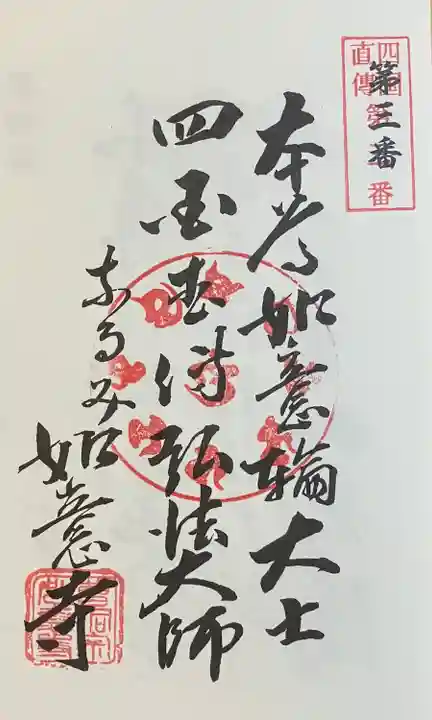 四国
直傳
第三番
本尊如意輪大士
四国直傳弘法大師
なるみ
如意寺